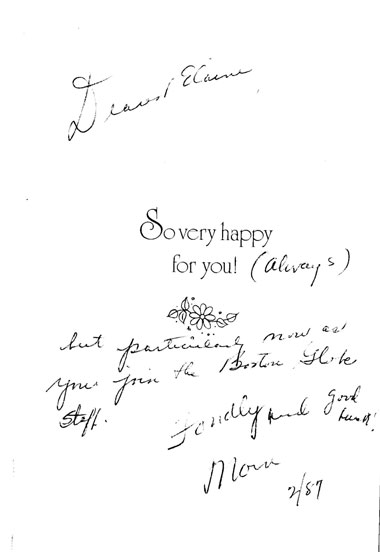 Dearest Elaine,
So very happy
for you! (always)
but particularly now as
you join the Boston Globe
Staff.
Fondly and Good
Luck!
Mom
2/87